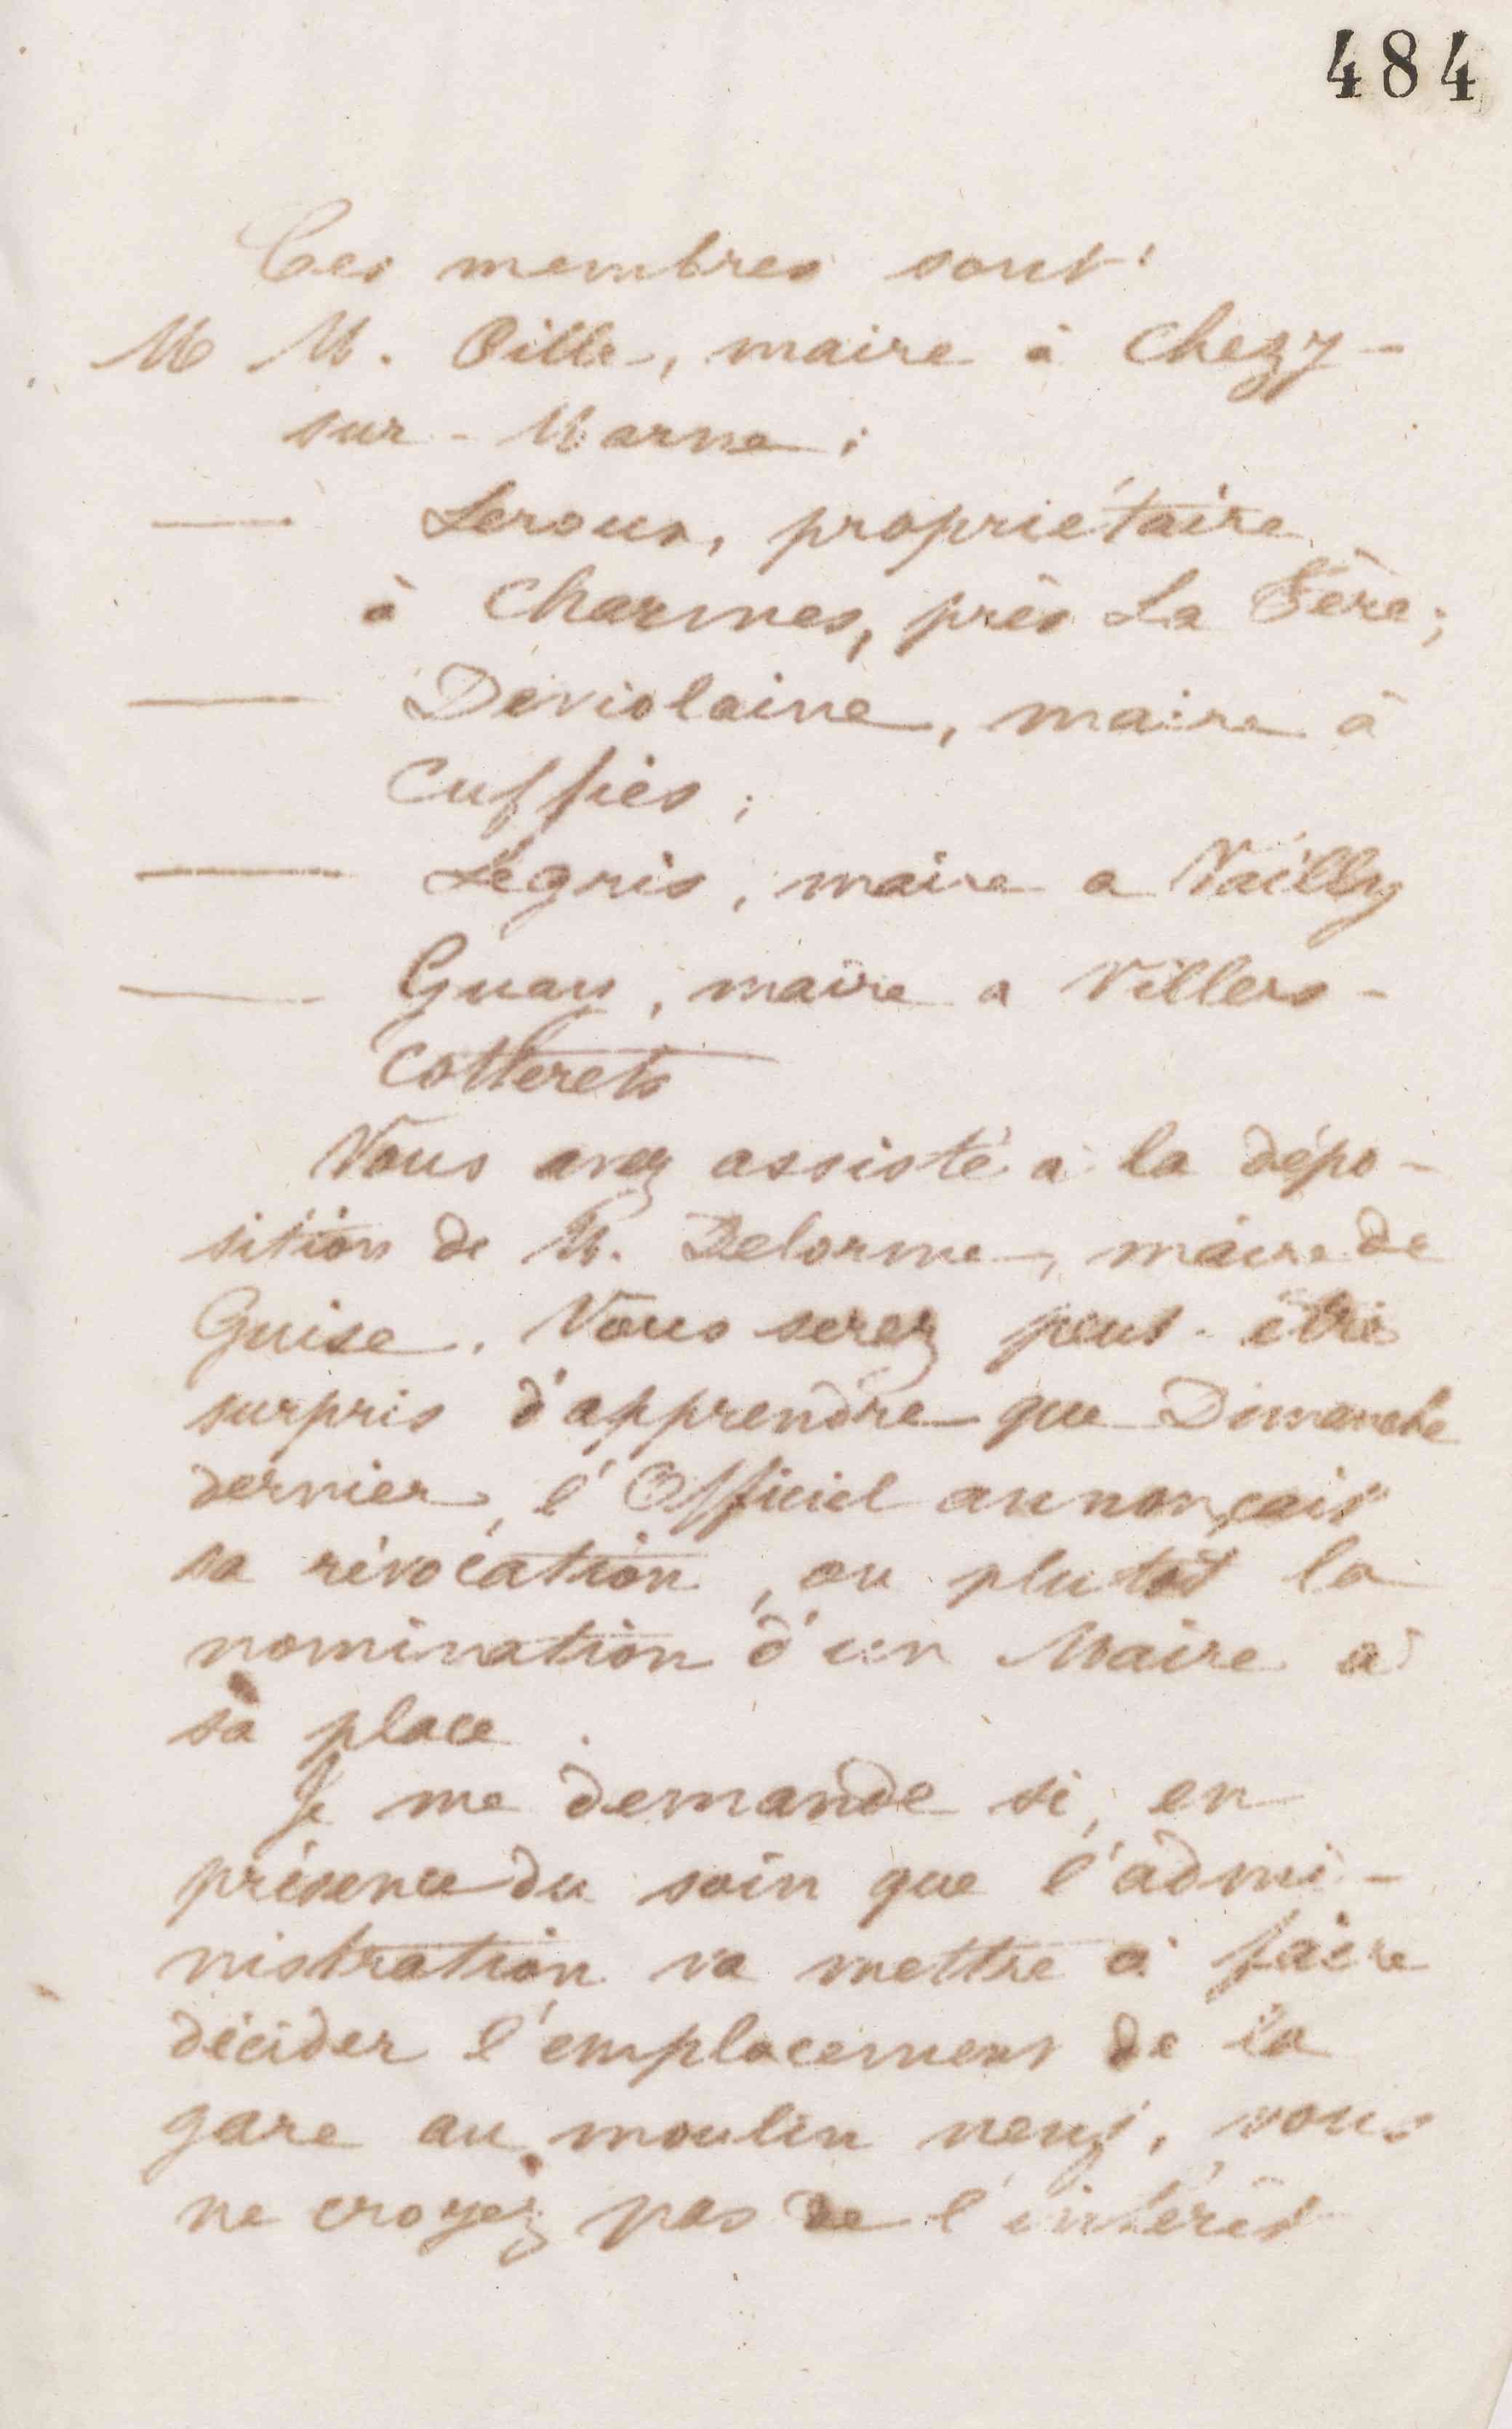 484
Ces membres sont:
M M. Bille, maire à Chezy-
sur-Marne;
— Leroux, propriétaire
à Charmes, près La Fère;
— Deviolaine, maire à
Cuffies;
— Legris, maire a Vailly
— Guay, maire a Villers-
Cotterets
Vous avez assisté à la dépo-
sition de M. Delorme, maire de
Guise. Vous serez peut-être
surpris d'apprendre que Dimanche
dernier, l'Officiel annonçait
sa révocation, ou plutôt la
nomination d'un Maire à
sa place.
Je me demande si, en
présence du soin que l'admi-
nistration va mettre à faire
décider l'emplacement de la
gare au moulin neuf, vous
ne croyez pas de l'intérêt